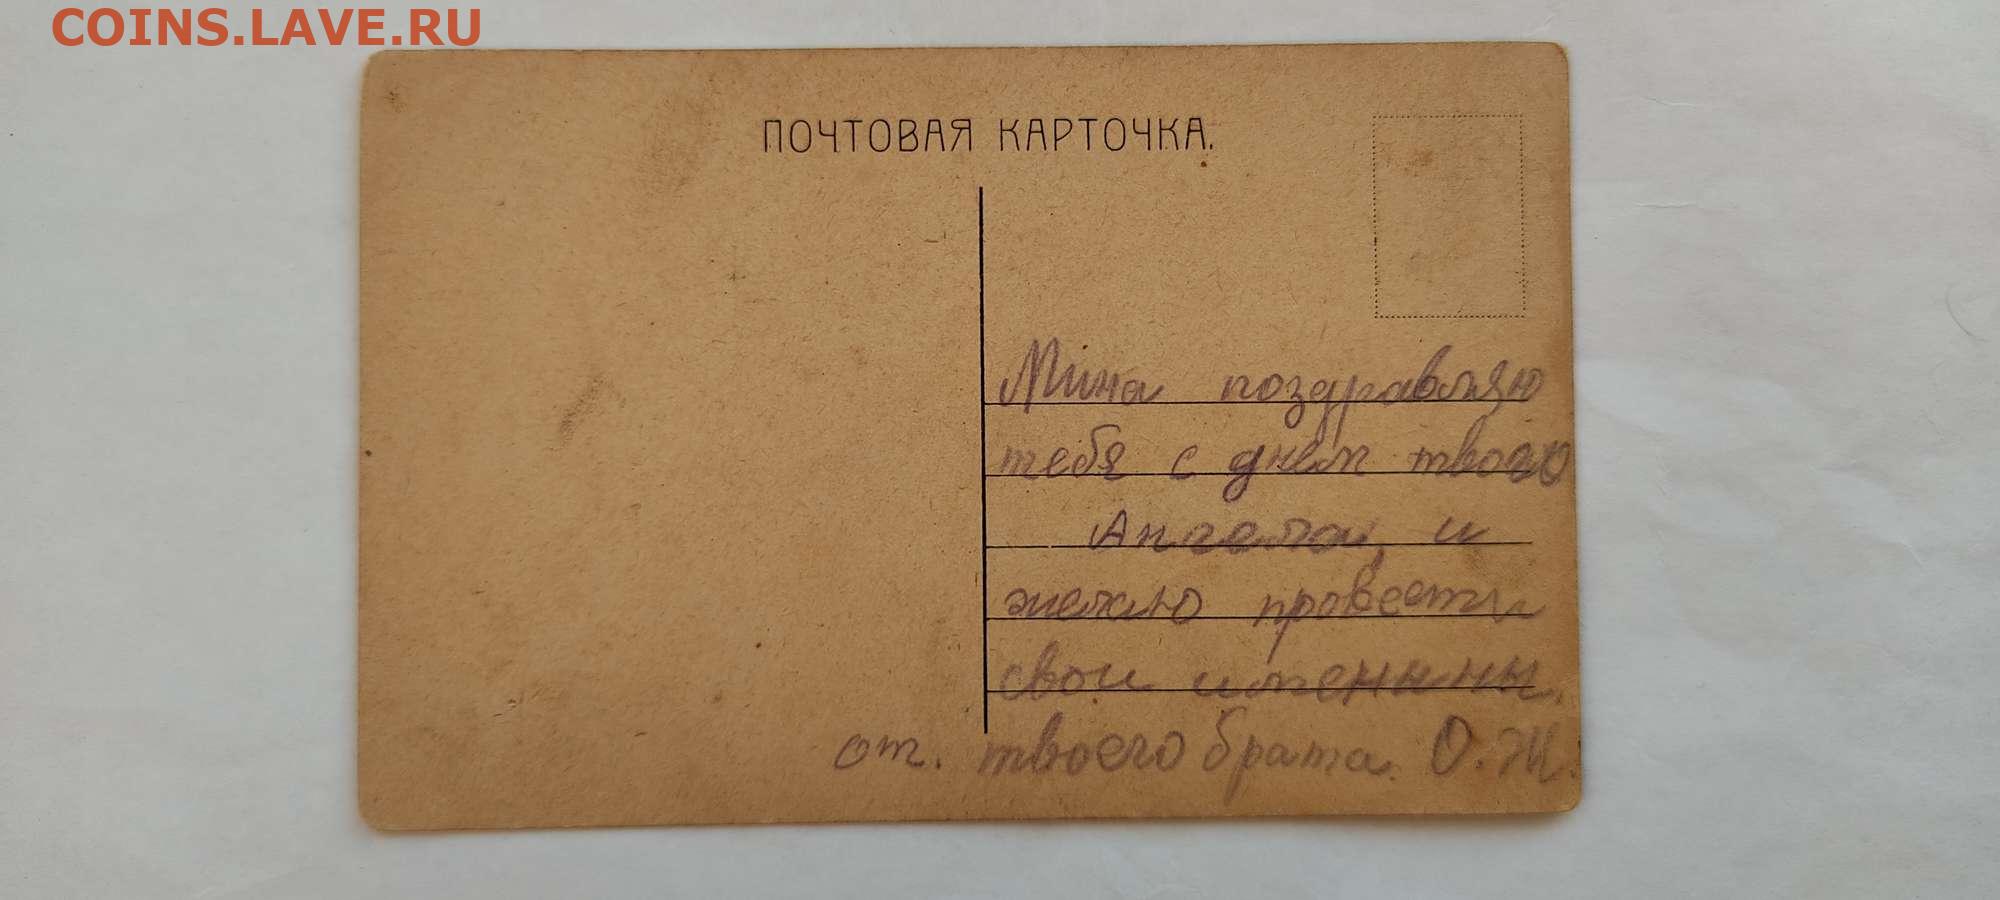 COINS.LAVE.RU
ПОЧТОВАЯ КАРТОЧКА.
Мина поздравляю
тебя с днем твоего
Ангела, и
желаю провести
свои именины.
от. твоего брата. О. Ж.